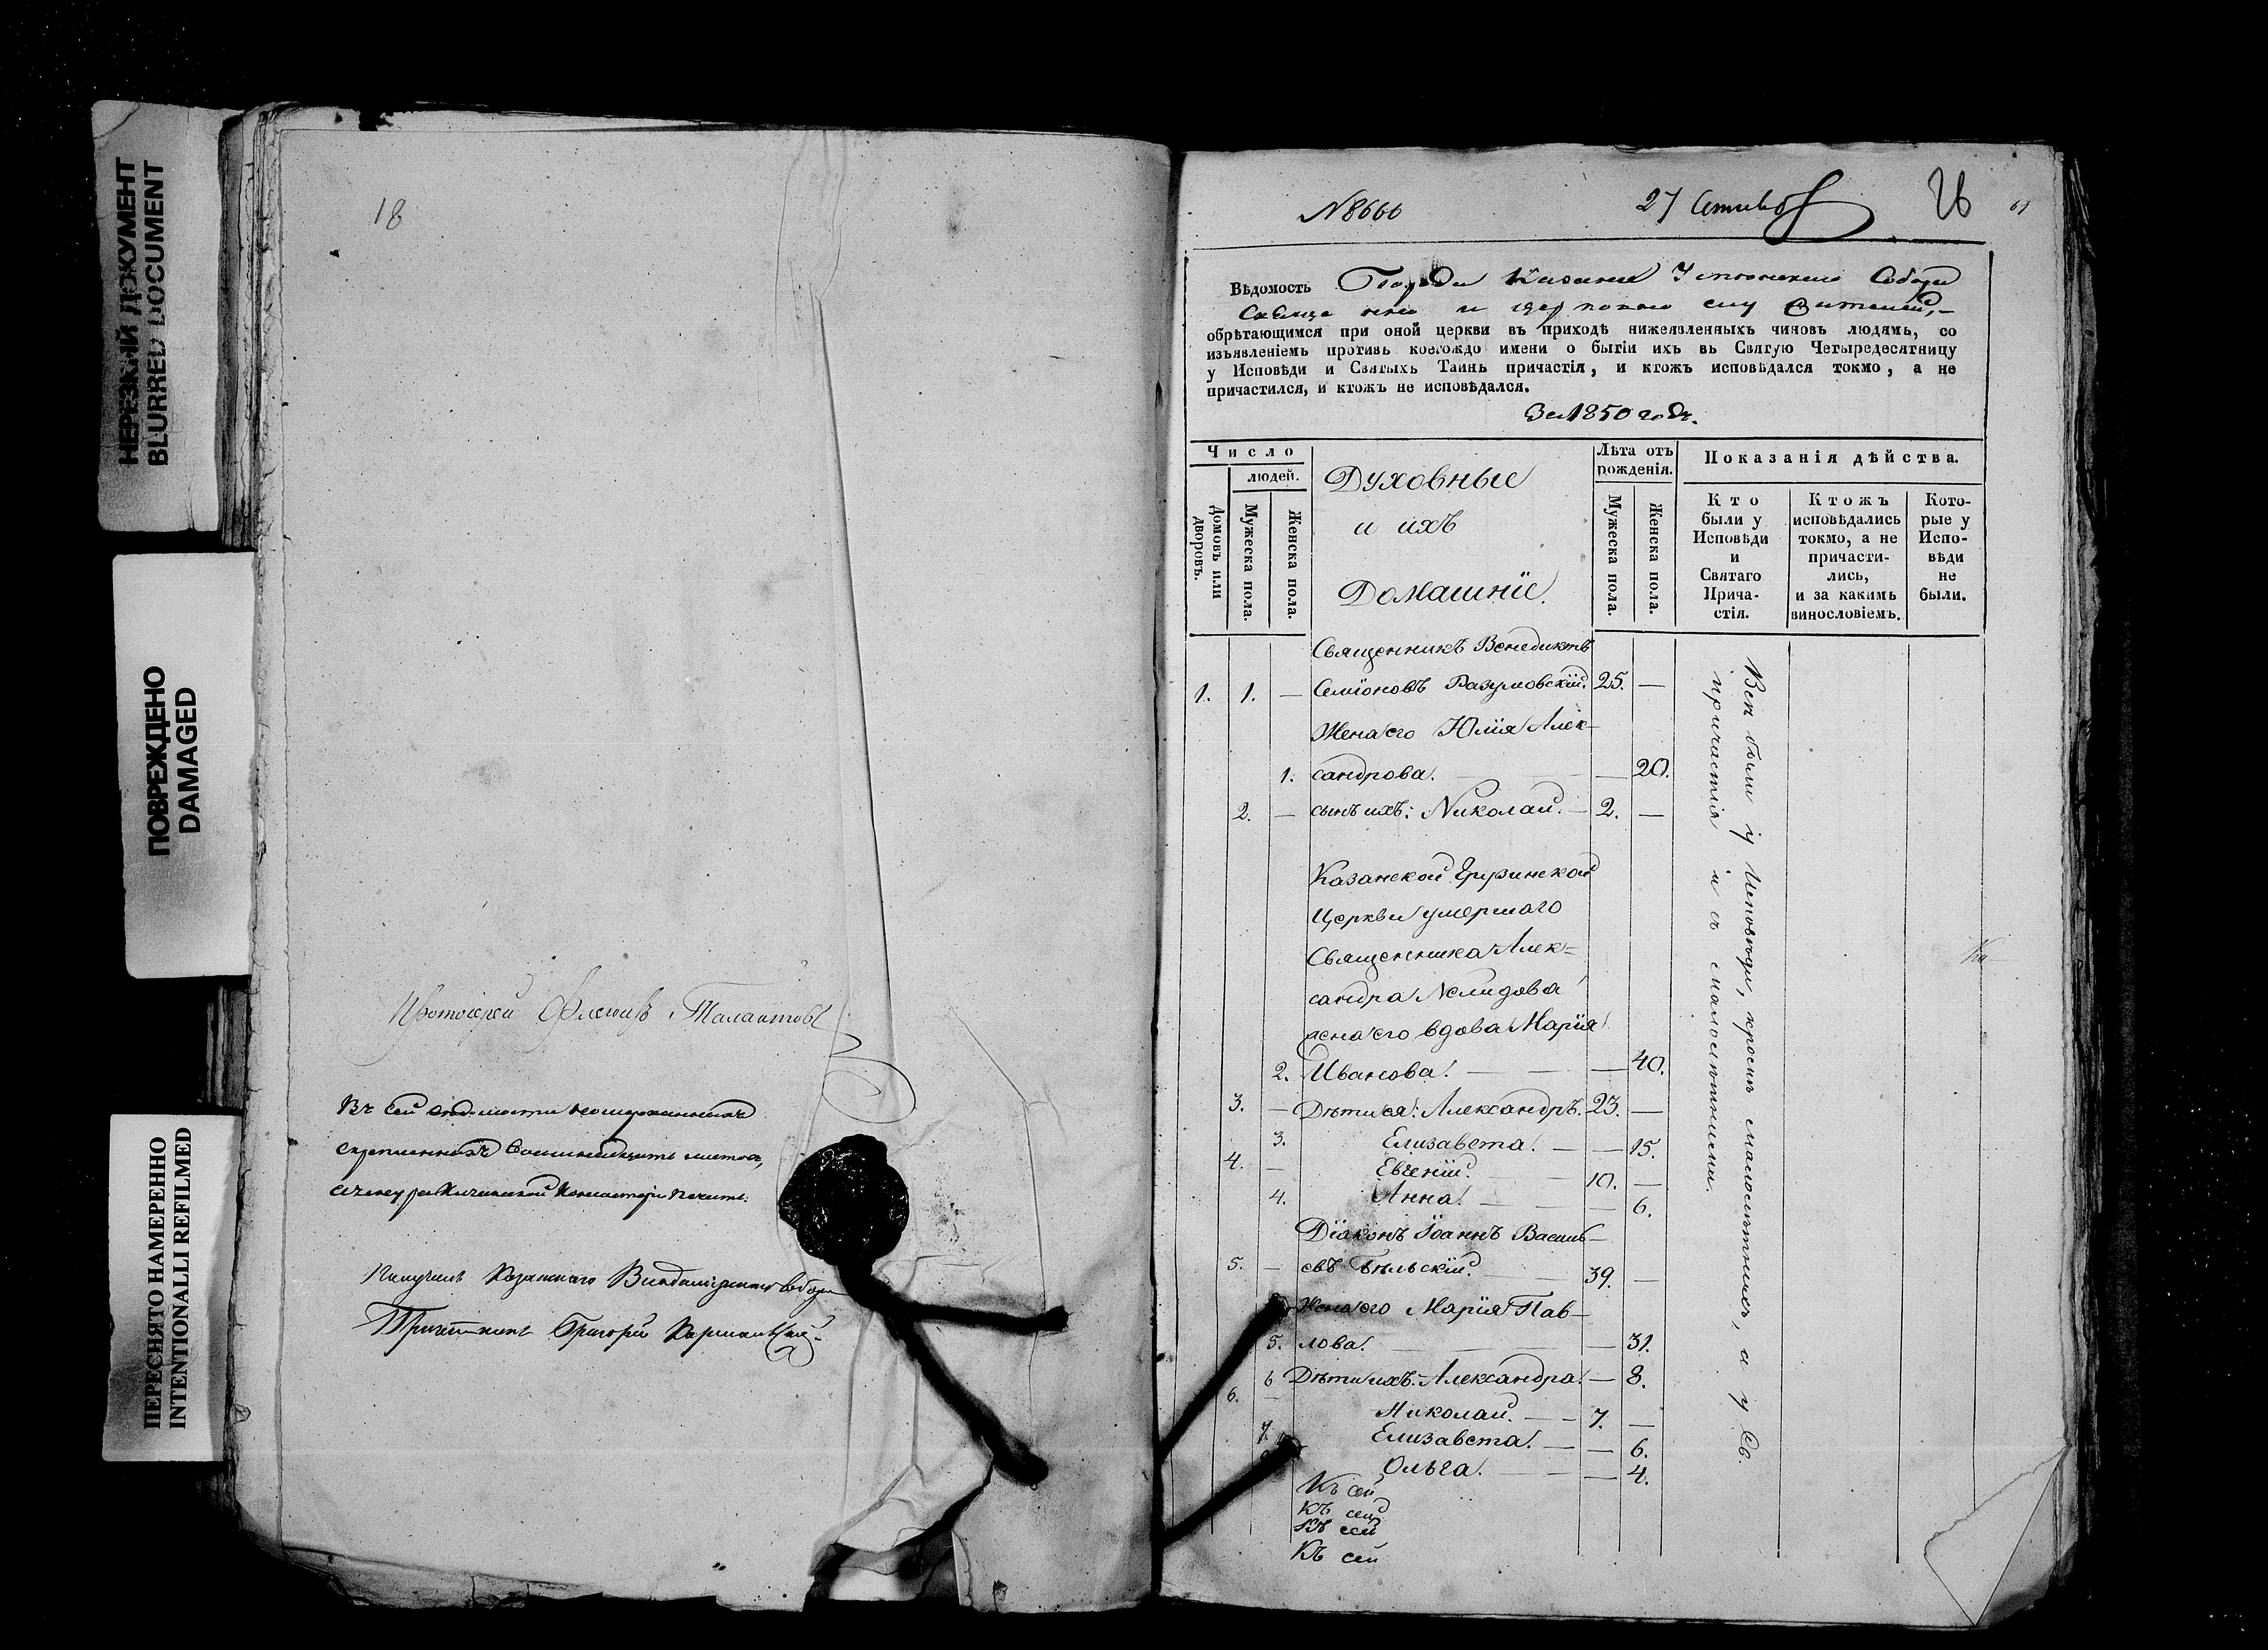 НЕРЕЗКИЙ ДОКУМЕНТ
BLURRED DOCUMENT
ПОВРЕЖДЕНО
DAMAGED
ПЕРЕСНЯТО НАМЕРЕННО
INTENTIONALLI REFILMED
18
Протоіерей Талантовъ
Въ сей
скрепленныхъ листовъ,
Казанскаго
Григорій
N8666
27
26
Вѣдомость Города Казани Собора
и
обрѣтающимся при оной церкви въ приходѣ нижеявленныхъ чиновъ людямъ, со
изъявленіемъ противъ коегождо имени о бытіи ихъ въ Святую Четыредесятницу
у Исповѣди и Святыхъ Таинъ причастія, и ктожъ исповѣдался токмо, а не
причастился, и ктожъ не исповѣдался.
За 1850 годъ.
Число
людей.
Домовъ или дворовъ.
Мужеска пола.
Женска пола.
Духовные
и ихъ
Домашніе.
Лѣта отъ рожденія.
Мужеска пола.
Женска пола.
Показанія дѣйства.
Кто
были у
Исповѣди
и
Святаго
Прича-
стія.
Ктожъ
исповѣдались
токмо, а не
причасти-
лись,
и за какимъ
винословіемъ.
Кото-
рые у
Испо-
вѣди
не
были.
Священникъ Венедиктъ
1. 1. — Семіоновъ Разумовскій. 25. —
Жена его Юлія Алек-
1. сандрова. — 20.
2. — сынъ ихъ: Николай. — 2. —
Казанской Грузинской
Церкви умершаго
Священника Алек-
сандра Нелидова
жена его вдова Марія
2. Иванова. — 40.
3. — Дѣти ея: Александръ. 23. —
3. Елизавета. — 15.
4. — Евгеній. 10. —
4. Анна. — 6.
Діаконъ Іоаннъ Василь-
5. — евъ Бѣльскій. 39. —
Жена его Марія Пав-
5. лова. — 31.
6 Дѣти ихъ: Александра. — 8.
6. — Николай. — 7. —
7. Елизавета. — 6.
Ольга. — 4.
Къ сей
Къ сей
Къ сей
Къ сей
Всѣ были у Исповѣди, кромѣ малолѣтнихъ, а у Св.
причастія и съ малолѣтними.